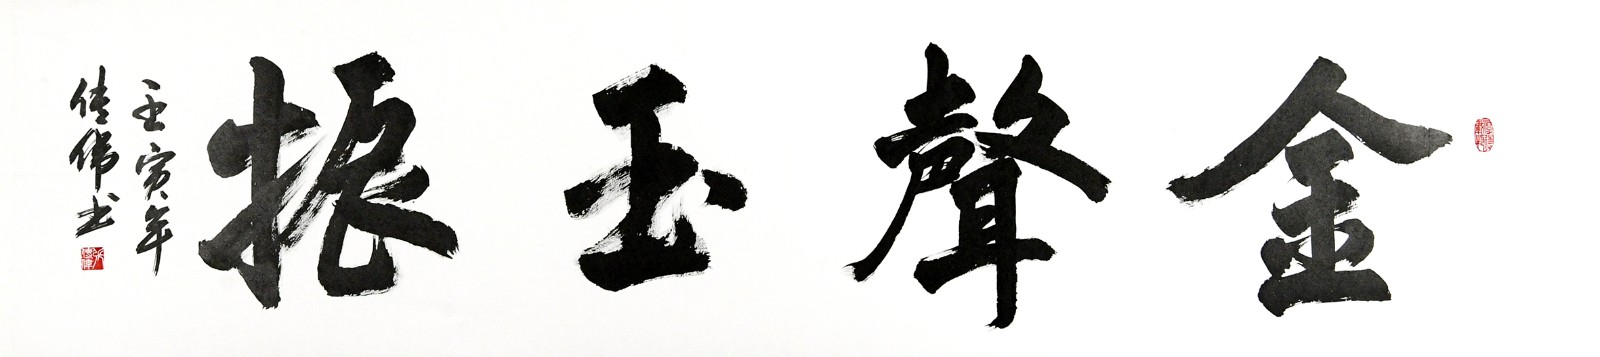 金聲玉振
壬寅年
佳偉书